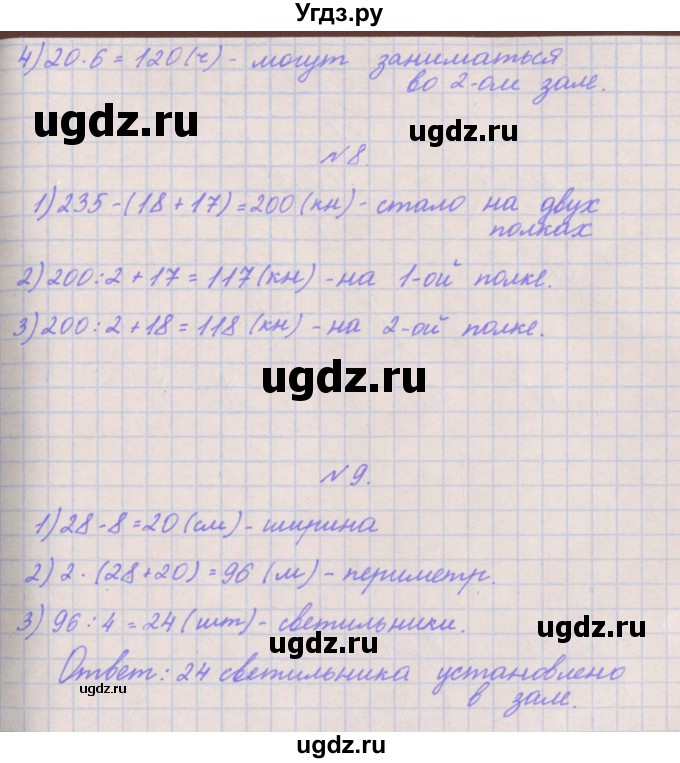 Угдз.ру
4) 20·6 = 120 (ч) - могут заниматься
во 2-ом зале.
ugdz.ru
ugdz.ru
№8.
1) 235 - (18 + 17) = 200 (кн) - стало на двух
полках
2) 200 : 2 + 17 = 117 (кн) - на 1-ой полке.
3) 200 : 2 + 18 = 118 (кн) - на 2-ой полке.
ugdz.ru
№9.
1) 28 - 8 = 20 (см) - ширина
2) 2 · (28 + 20) = 96 (м) - периметр.
3) 96 : 4 = 24 (шт) - светильники.
ugdz.ru
ugdz.ru
Ответ: 24 светильника установлено
в зале.
ugdz.ru
ugdz.ru
ugdz.ru